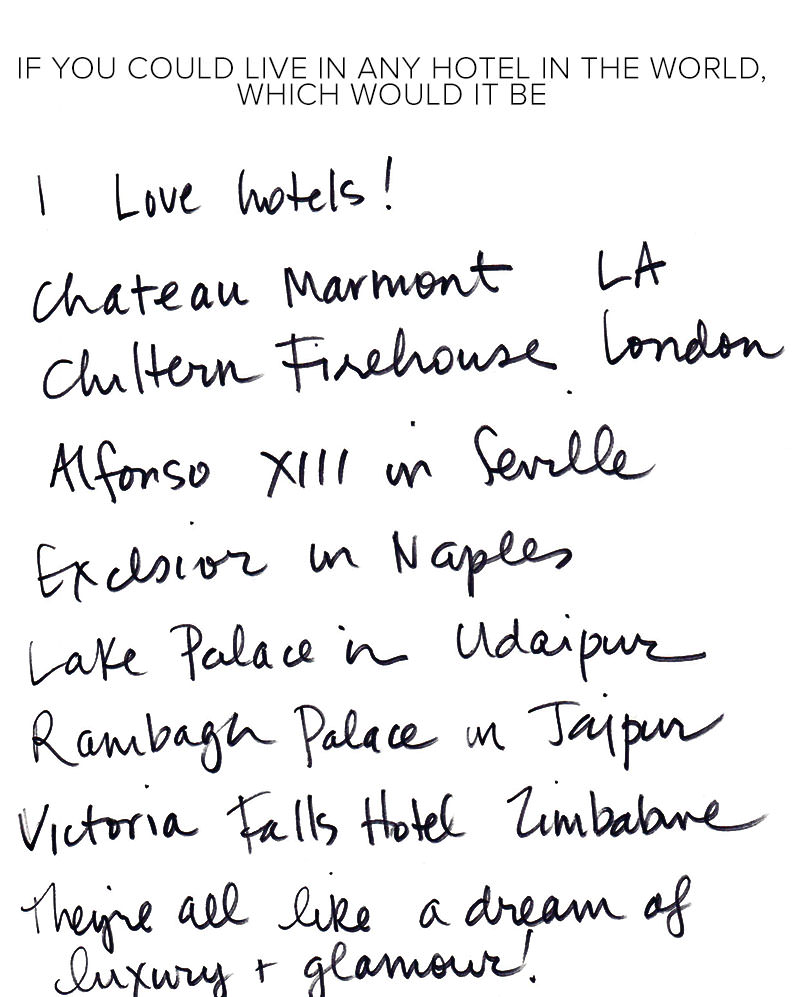 IF YOU COULD LIVE IN ANY HOTEL IN THE WORLD,
WHICH WOULD IT BE
I Love hotels!
Chateau Marmont LA
Chiltern Firehouse London
Alfonso XIII in Seville
Excelsior in Naples
Lake Palace in Udaipur
Rambagh Palace in Jaipur
Victoria Falls Hotel Zimbabwe
They're all like a dream of
luxury + glamour!